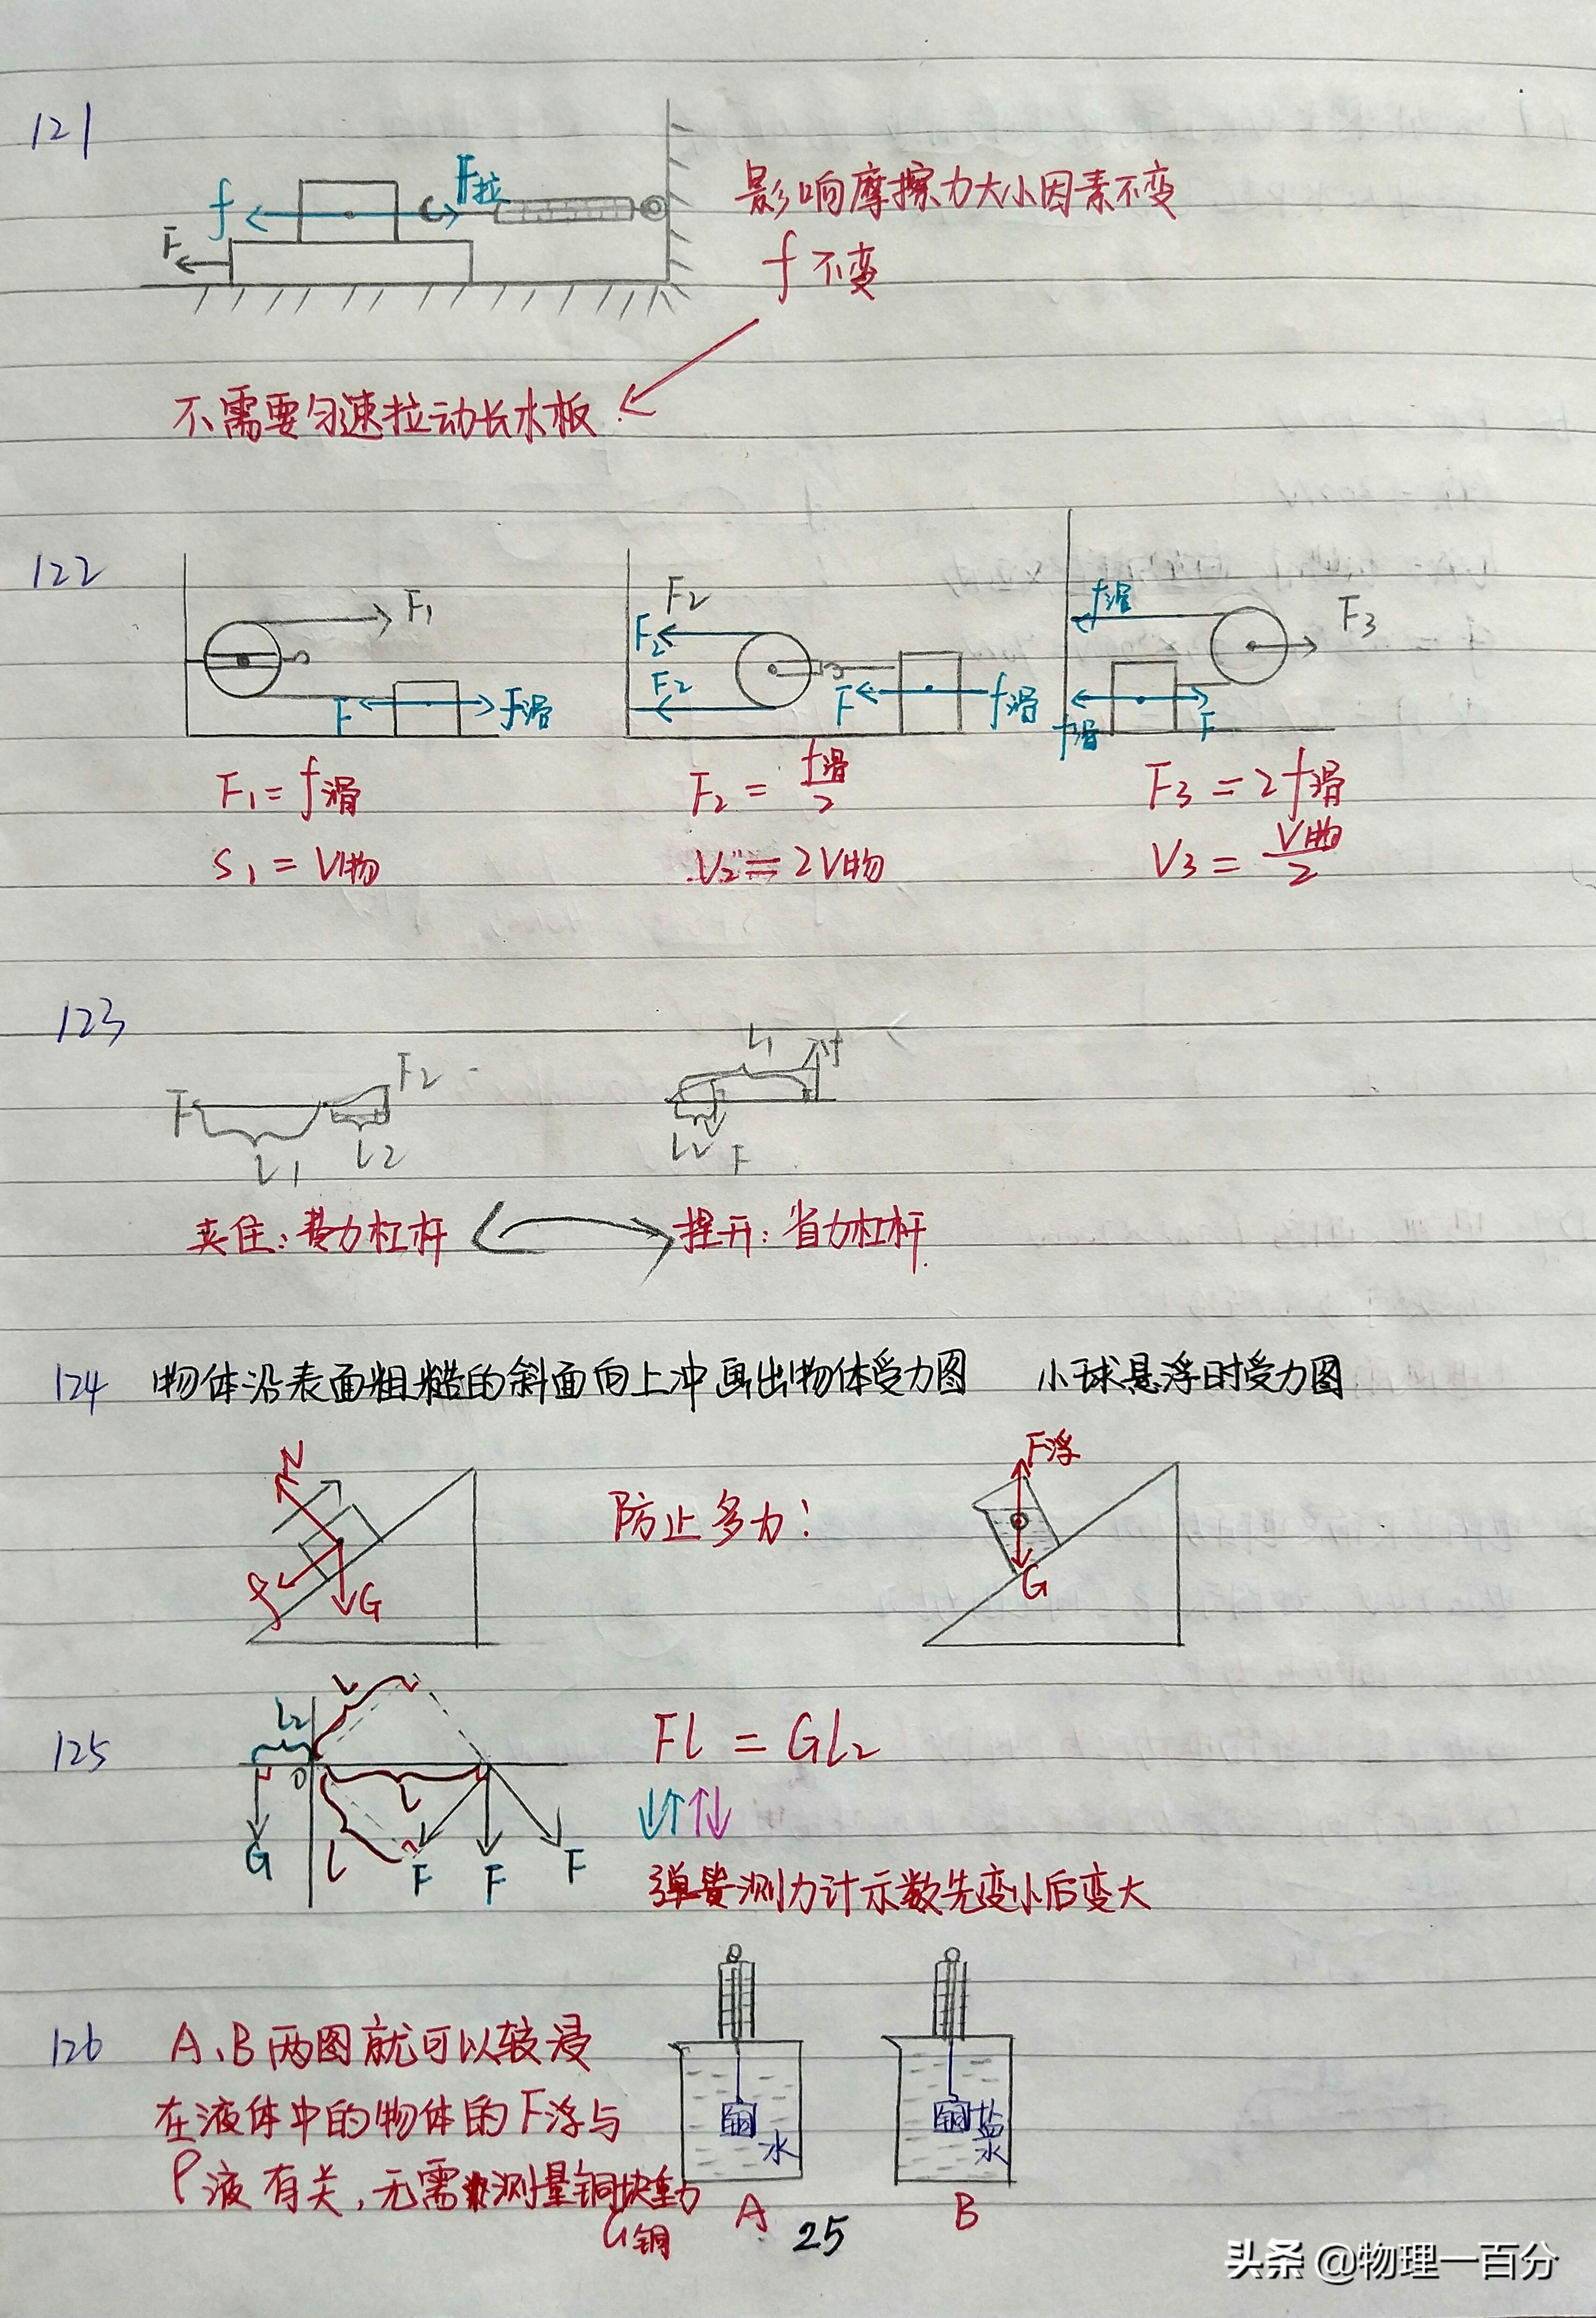 121
f
F拉
F
影响摩擦力大小因素不变
f 不变
不需要匀速拉动长木板
122
F1
F
f滑
F2
F2
F2
F
f滑
f滑
F3
f滑
F
F1 = f滑
F2 = f滑/2
F3 = 2f滑
S1 = V物
V2 = 2V物
V3 = V物/2
123
F
F2
L1
L2
L1
f
L2
F
夹住：费力杠杆
推开：省力杠杆
124 物体沿表面粗糙的斜面向上冲画出物体受力图 小球悬浮时受力图
N
f
G
防止多力！
F浮
G
125
L2
L
O
L
L
G
F
F
F
FL = GL2
↓↑↑↓
弹簧测力计示数先变小后变大
126 A、B两图就可以较浸
在液体中的物体的F浮与
ρ液有关，无需测量铜块重力
G铜
铜
水
A
铜
盐水
B
25
头条 @物理一百分